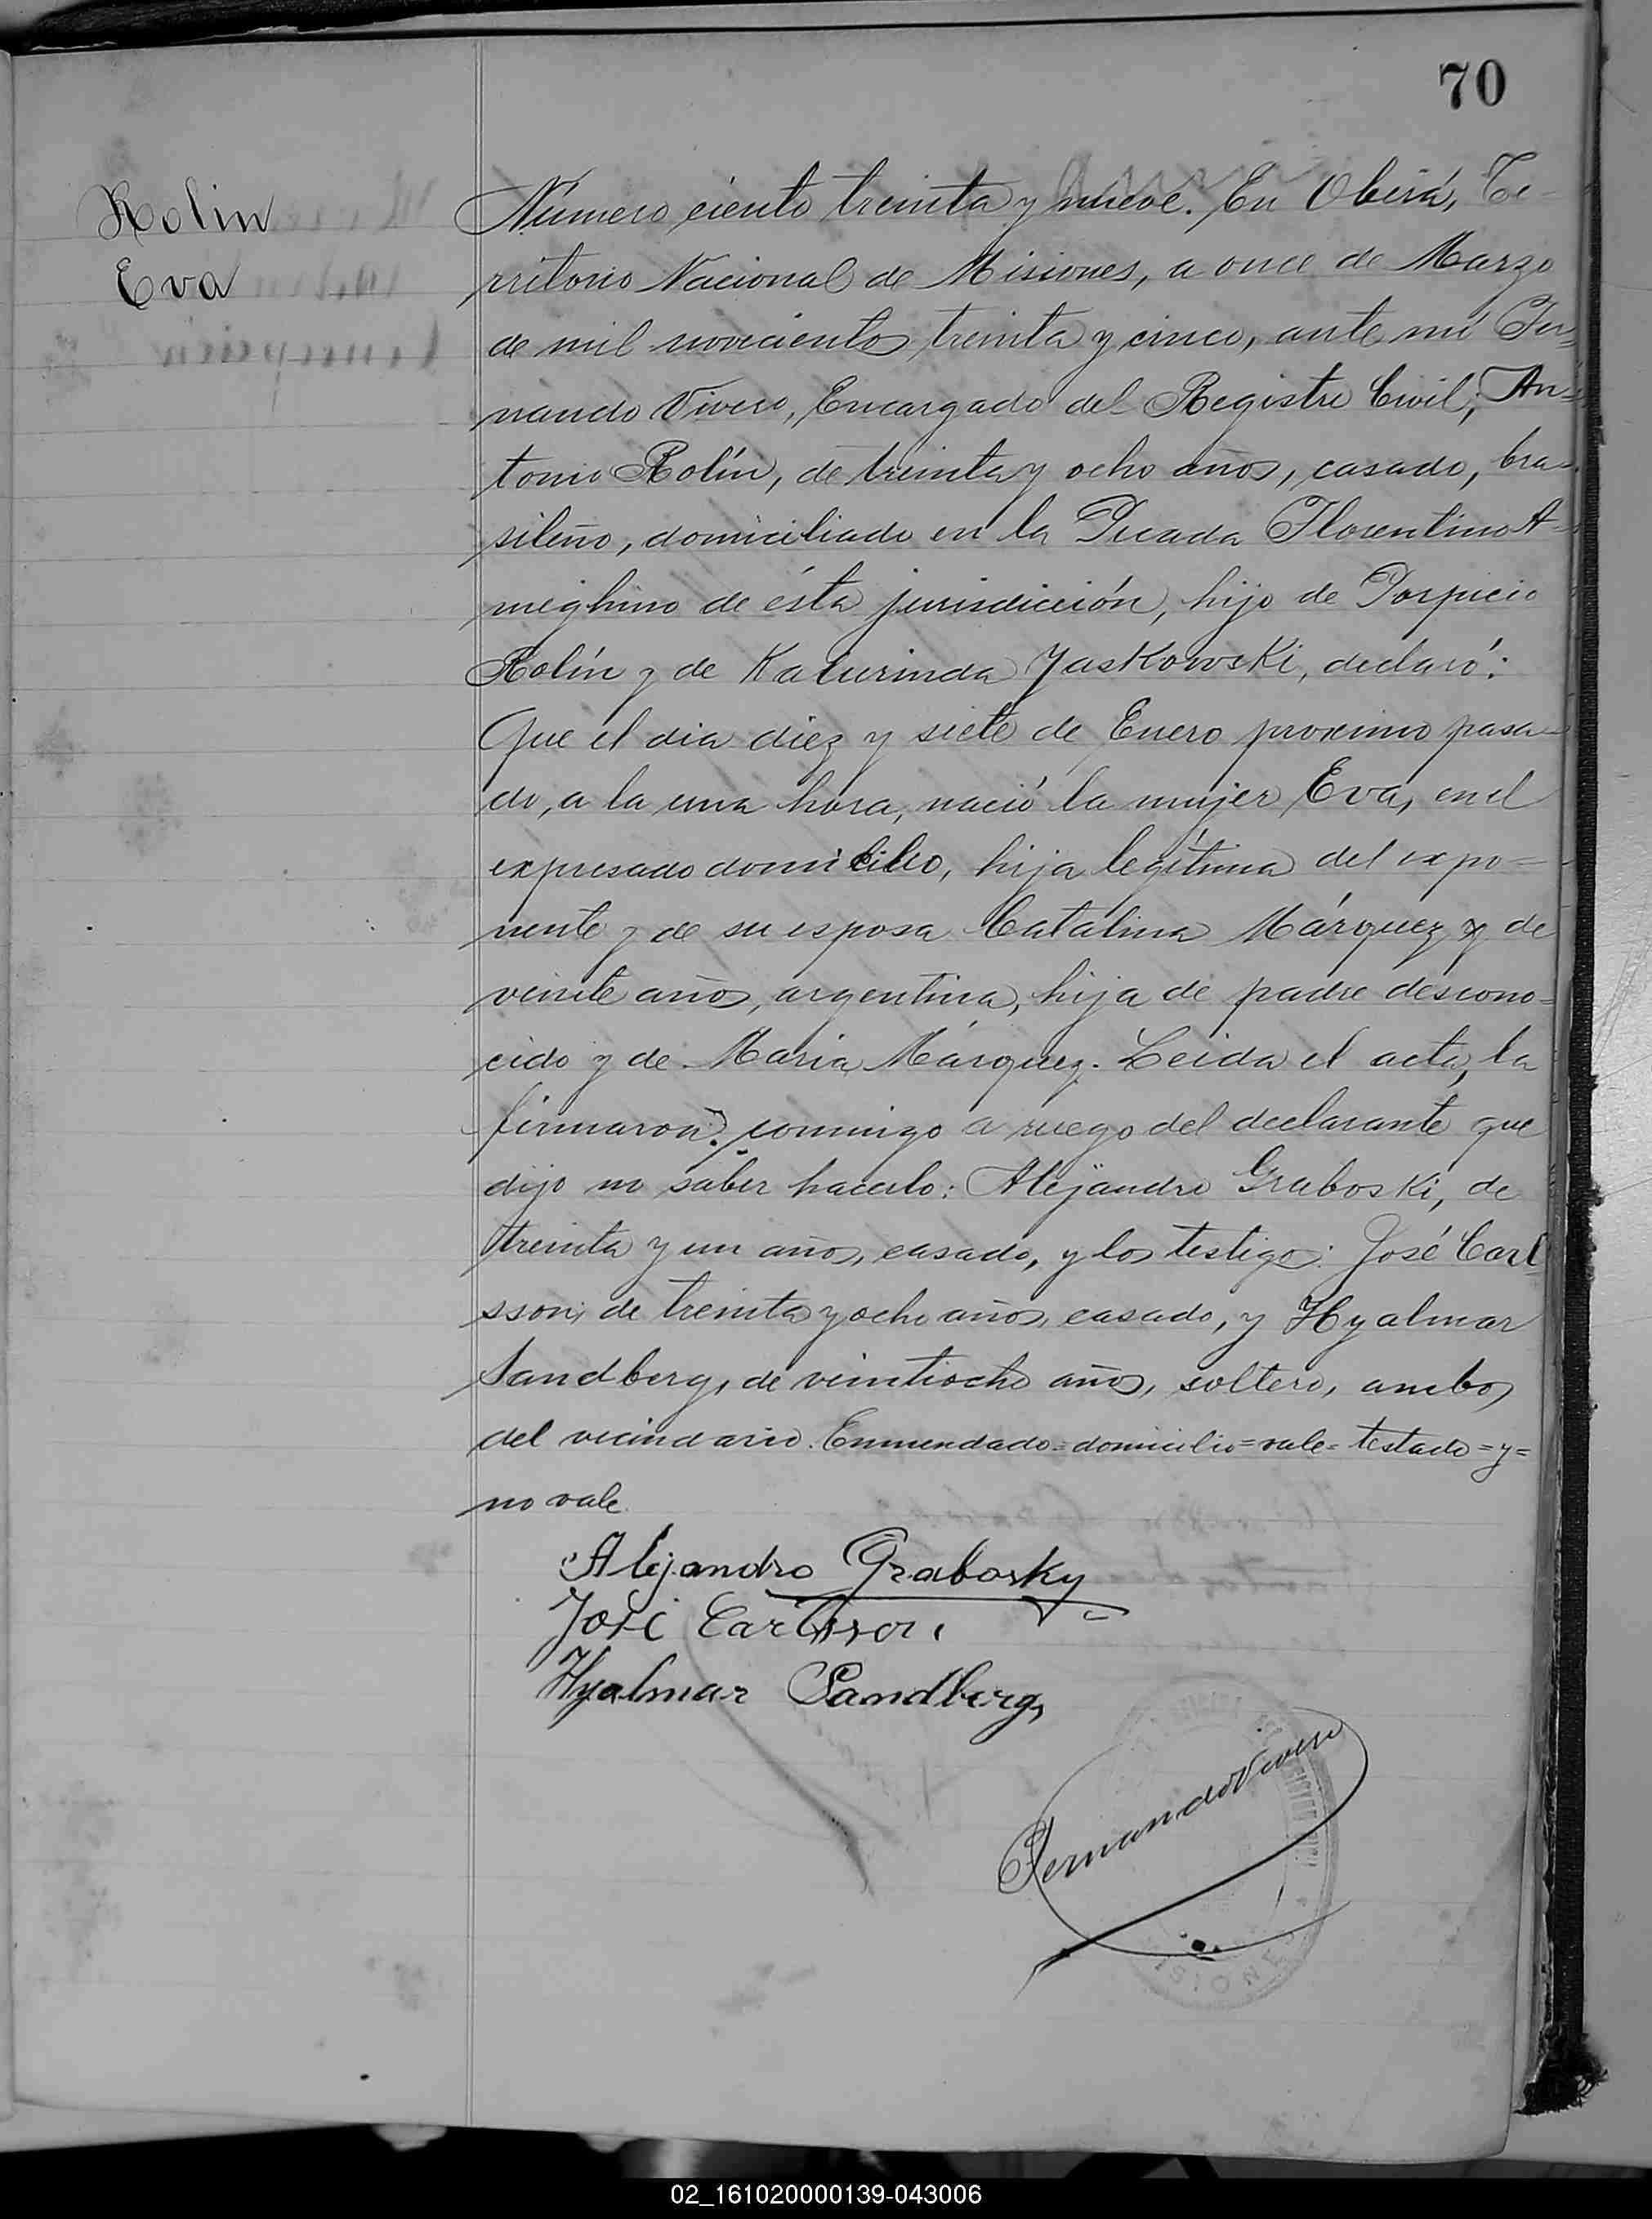 70
Rolin
Eva
Número ciento treinta y nueve. En Oberá, Te-
rritorio Nacional de Misiones, a once de Marzo
de mil novecientos treinta y cinco, ante mí Fer=
nando Vivero, Encargado del Registro Civil, An=
tonio Rolín, de treinta y ocho años, casado, bra=
sileño, domiciliado en la Picada Florentino A=
meghino de ésta jurisdicción, hijo de Porpicio
Rolín y de Katurinda Yaskowski, declaró:
Que el dia diez y siete de Enero proximo pasa=
do, a la una hora, nació la mujer Eva, en el
expresado domicilio, hija legítima del expo=
nente y de su esposa Catalina Márquez y de
veinte años, argentina, hija de padre descono=
cido y de Maria Márquez. Leida el acta, la
firmaron conmigo a ruego del declarante que
dijo no saber hacerlo: Alejandro Graboski, de
treinta y un años, casado, y los testigos: José Carl
sson, de treinta y ocho años, casado, y Hyalmar
Sandberg, de veintiocho años, soltero, ambos
del vecindario. Enmendado=domicilio=vale= testado=y=
no vale.
Alejandro Grabosky
José Carlsson
Hyalmar Sandberg,
Fernando Vivero
02_161020000139-043006